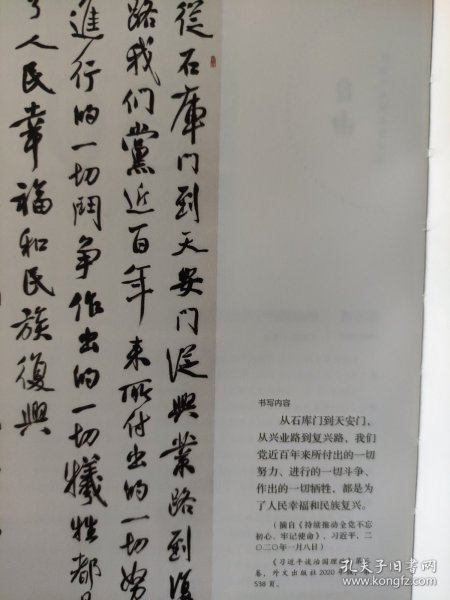 從石庫门到天安门從興業路到復
路我们黨近百年来所付出的一切努
進行的一切鬪争作出的一切犧牲都是
了人民幸福和民族復興
自由
书写内容
从石库门到天安门、
从兴业路到复兴路，我们
党近百年来所付出的一切
努力、进行的一切斗争、
作出的一切牺牲，都是为
了人民幸福和民族复兴。
（摘自《持续推动全党不忘
初心、牢记使命》，习近平，二
〇二〇年一月八日）
《习近平谈治国理政》第
卷，外文出版社2020
538页。
孔夫子旧书网